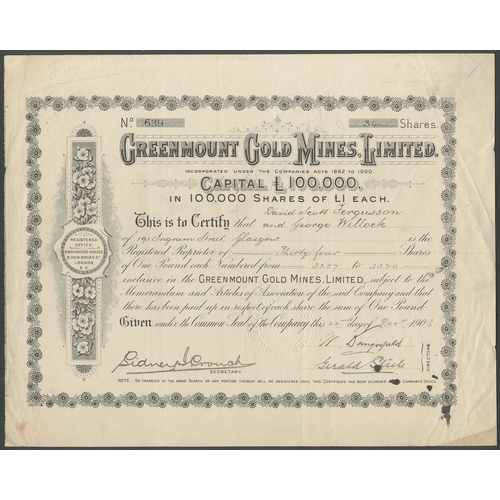 Nº 639 34 Shares.
GREENMOUNT GOLD MINES, LIMITED.
INCORPORATED UNDER THE COMPANIES ACTS 1862 TO 1900.
CAPITAL £100,000.
IN 100,000 SHARES OF £1 EACH.
David Scott Fergusson
This is to Certify that and George Willock
of 191 Ingram Street Glasgow is the
Registered Proprietor of Thirty four Shares
of One Pound each Numbered from 3337 to 3370
inclusive in the GREENMOUNT GOLD MINES, LIMITED, subject to the
Memorandum and Articles of Association of the said Company and that
there has been paid up in respect of each share the sum of One Pound
Given under the Common Seal of the Company this 22 day of Decr 1903
REGISTERED
OFFICE
DASHWOOD HOUSE
9, NEW BROAD ST
LONDON,
E.C.
Sidney Crouch
SECRETARY
Gerald Steele
DIRECTORS
NOTE. NO TRANSFER OF THE ABOVE SHARES OR ANY PORTION THEREOF WILL BE REGISTERED UNTIL THIS CERTIFICATE HAS BEEN DELIVERED COMPANY'S OFFICE.